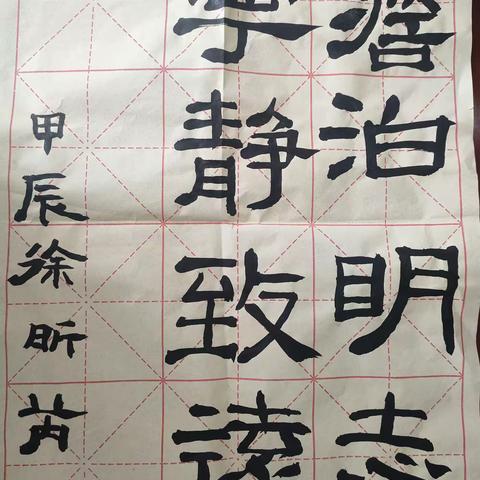 澹泊明志
寧静致遠
甲辰徐昕芮